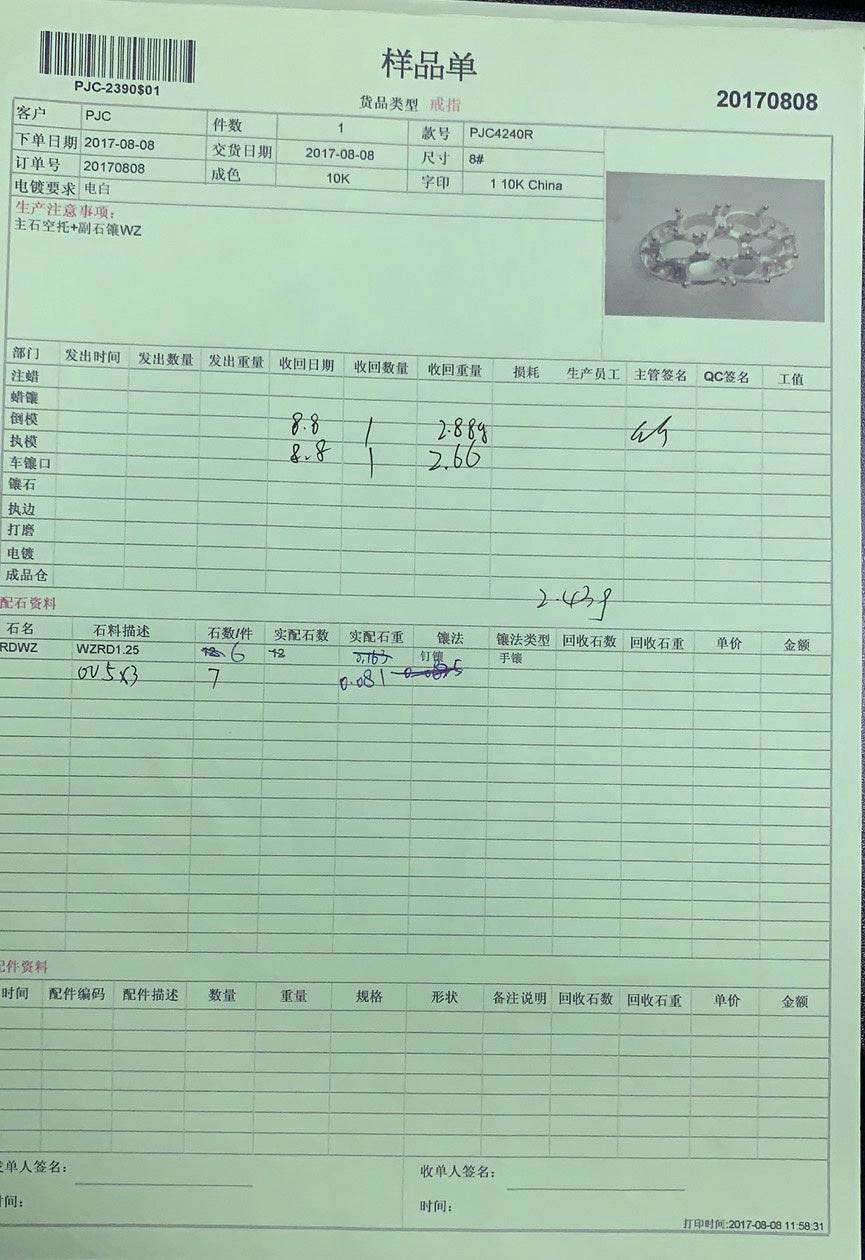 PJC-2390$01
样品单
货品类型 戒指
20170808
客户 PJC 件数 1 款号 PJC4240R
下单日期 2017-08-08 交货日期 2017-08-08 尺寸 8#
订单号 20170808 成色 10K 字印 1 10K China
电镀要求 电白
生产注意事项:
主石空托+副石镶WZ
部门 发出时间 发出数量 发出重量 收回日期 收回数量 收回重量 损耗 生产员工 主管签名 QC签名 工值
注蜡
蜡镶
倒模 8.8 1 2.88g
执模 8.8 1 2.66
车镶口
镶石
执边
打磨
电镀
成品仓
2.43g
配石资料
石名 石料描述 石数/件 实配石数 实配石重 镶法 镶法类型 回收石数 回收石重 单价 金额
RDWZ WZRD1.25 6 钉镶 手镶
OV 5x3 7 0.081
配件资料
时间 配件编码 配件描述 数量 重量 规格 形状 备注说明 回收石数 回收石重 单价 金额
发单人签名: 收单人签名:
时间: 时间:
打印时间:2017-08-08 11:58:31